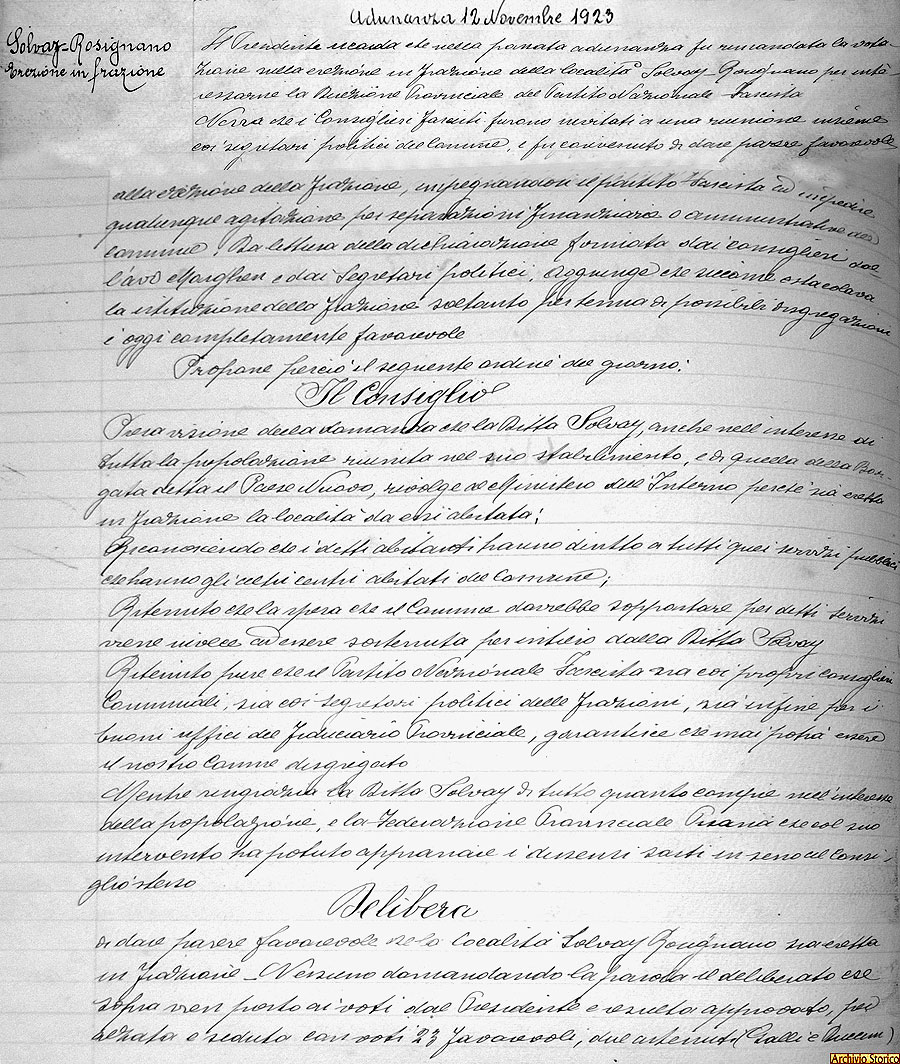 Adunanza 12 Novembre 1923
Solvay-Rosignano
Erezione in frazione
Il Presidente ricorda che nella passata adunanza fu rimandata la vota-
zione nella erezione in frazione della località Solvay-Rosignano per inte-
ressarne la Direzione Provinciale del Partito Nazionale Fascista
Narra che i Consiglieri Fascisti furono invitati a una riunione insieme
coi segretari politici del Comune, e fu convenuto di dare parere favorevole
alla erezione della Frazione, impegnandosi il partito Fascista ad impedire
qualunque agitazione per separazioni finanziarie o amministrative del
comune. Dà lettura della dichiarazione formata dai consiglieri dal
l'avv Marghen e dai Segretari politici. Aggiunge che siccome ostacolava
la istituzione della Frazione soltanto per tema di possibili disgregazioni
è oggi completamente favorevole
Propone perciò il seguente ordine del giorno:
Il Consiglio
Presa visione della domanda che la Ditta Solvay, anche nell'interesse di
tutta la popolazione riunita nel suo stabilimento, e di quella della Bor-
gata detta il Paese Nuovo, rivolge al Ministero dell'Interno perché sia eretta
in frazione la località da essi abitata;
Riconoscendo che i detti abitanti hanno diritto a tutti quei servizi pubblici
che hanno gli altri centri abitati del Comune;
Ritenuto che la spesa che il Comune dovrebbe sopportare per detti servizi
viene invece ad essere sostenuta per intiero dalla Ditta Solvay
Ritenuto pure che il Partito Nazionale Fascista sia coi propri consiglieri
Comunali, sia coi segretari politici delle Frazioni, sia infine per i
buoni uffici del Fiduciario Provinciale, garantisce che mai potrà essere
il nostro Comune disgregato
Mentre ringrazia la Ditta Solvay di tutto quanto compie nell'interesse
della popolazione, e la Federazione Provinciale Pisana che col suo
intervento ha potuto appianare i dissensi sorti in seno al Consi-
glio stesso
Delibera
di dare parere favorevole che la località Solvay Rosignano sia eretta
in Frazione - Nessuno domandando la parola il deliberato che
sopra vien posto ai voti dal Presidente e resulta approvato, per
alzata e seduta con voti 23 favorevoli, due astenuti (Galli e
Archivio Storico